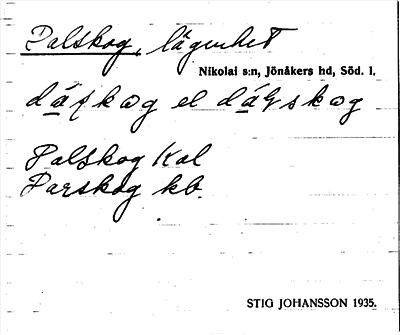 Dalskog, lägenhet
Nikolai s:n, Jönåkers hd, Söd. l.
el
Dalskog Kal
Darskog kb.
STIG JOHANSSON 1935.